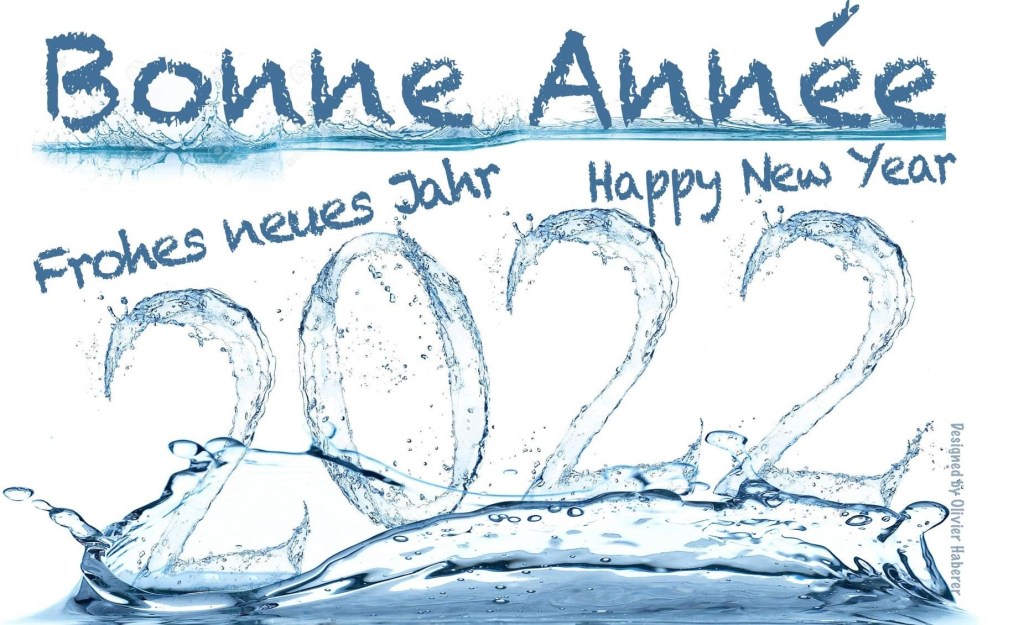 Bonne Année
Frohes neues Jahr
Happy New Year
2022
Designed by Olivier Haberer